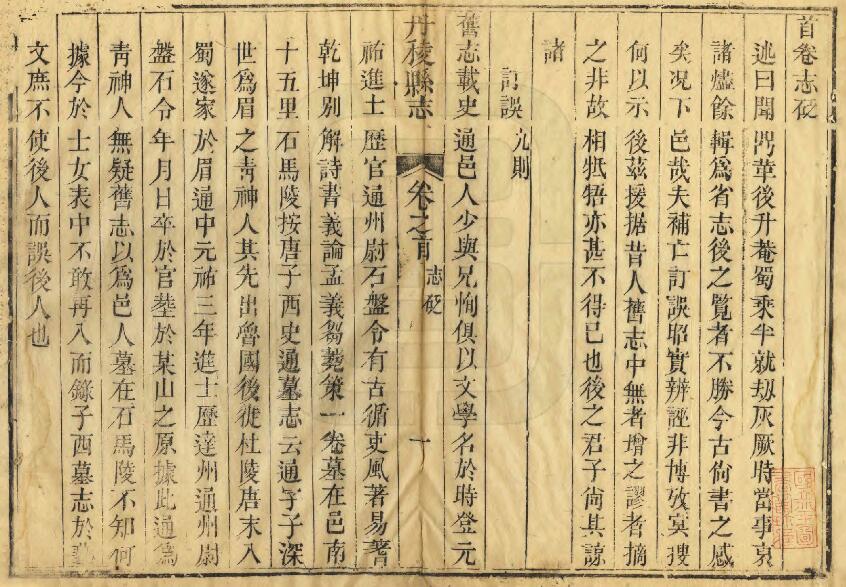 首卷志砭
述曰聞咒華後升菴蜀乘半就刼灰厥時當事哀
諸燼餘輯爲省志後之覽者不勝今古尙書之感
矣况下邑哉夫補亡訂誤昭實辨誣非博攷冥搜
何以示後茲援据昔人舊志中無者增之謬者摘
之非故相牴牾亦甚不得已也後之君子尙其諒
諸
訂誤九則
舊志載史通邑人少與兄恂俱以文學名於時登元
丹稜縣志
卷之首
志砭
十
祐進士歷官通州尉石盤令有古循吏風著易蓍
乾坤別解詩書義論孟義芻蕘策一卷墓在邑南
十五里石馬陵按唐子西史通墓志云通字子深
世爲眉之靑神人其先出魯國後徙杜陵唐末入
蜀遂家於眉通中元祐三年進士歷達州通州尉
盤石令年月日卒於官塟於某山之原據此通爲
靑神人無疑舊志以爲邑人墓在石馬陵不知何
據今於士女表中不敢再入而錄子西墓志於
文庶不使後人而誤後人也